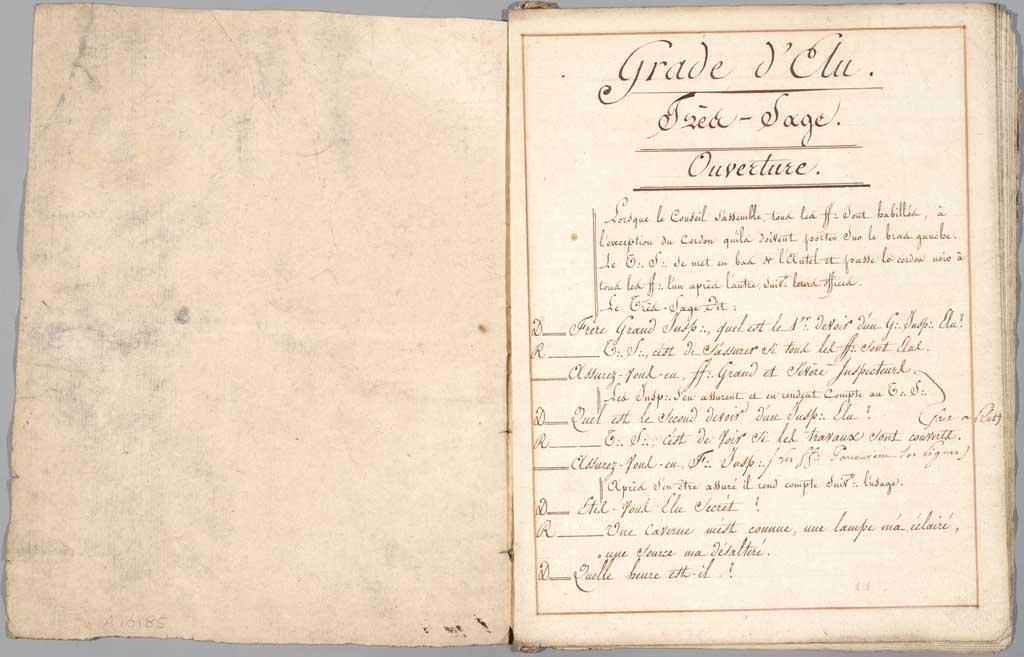 Grade d'Elu.
Très-Sage.
Ouverture.
Lorsque le Conseil s'assemble, tous les ff∴ sont habillés, à
l'exception du Cordon qu'ils doivent porter sur le bras gauche.
Le T∴ S∴ se met en bas de l'Autel et passe le cordon noir à
tous les ff∴ l'un après l'autre, suiv.t leurs offices.
Le Très-Sage Dit :
D__ Frère Grand Insp∴, quel est le 1.er devoir d'un G∴ Insp∴ Elu ?
R____ T∴ S∴, c'est de s'assurer si tous les ff∴ sont Elus.
____ Assurez-vous-en, ff∴ Grand et Sévère Inspecteurs.
Les Insp∴ s'en assurent et en rendent Compte au T∴ S∴
D__ Quel est le second devoir d'un Insp∴ Elu ?
R____ T∴ S∴, c'est de voir si les travaux sont couverts.
____ Assurez-vous-en, F∴ Insp∴ (les ff∴ les lignes)
Après s'en être assuré il rend compte suiv.t l'usage.
D__ Etes-vous Elu Secrêt ?
R____ Une Caverne m'est connue, une lampe m'a éclairé,
une source m'a désaltéré.
D__ Quelle heure est-il ?
A16185